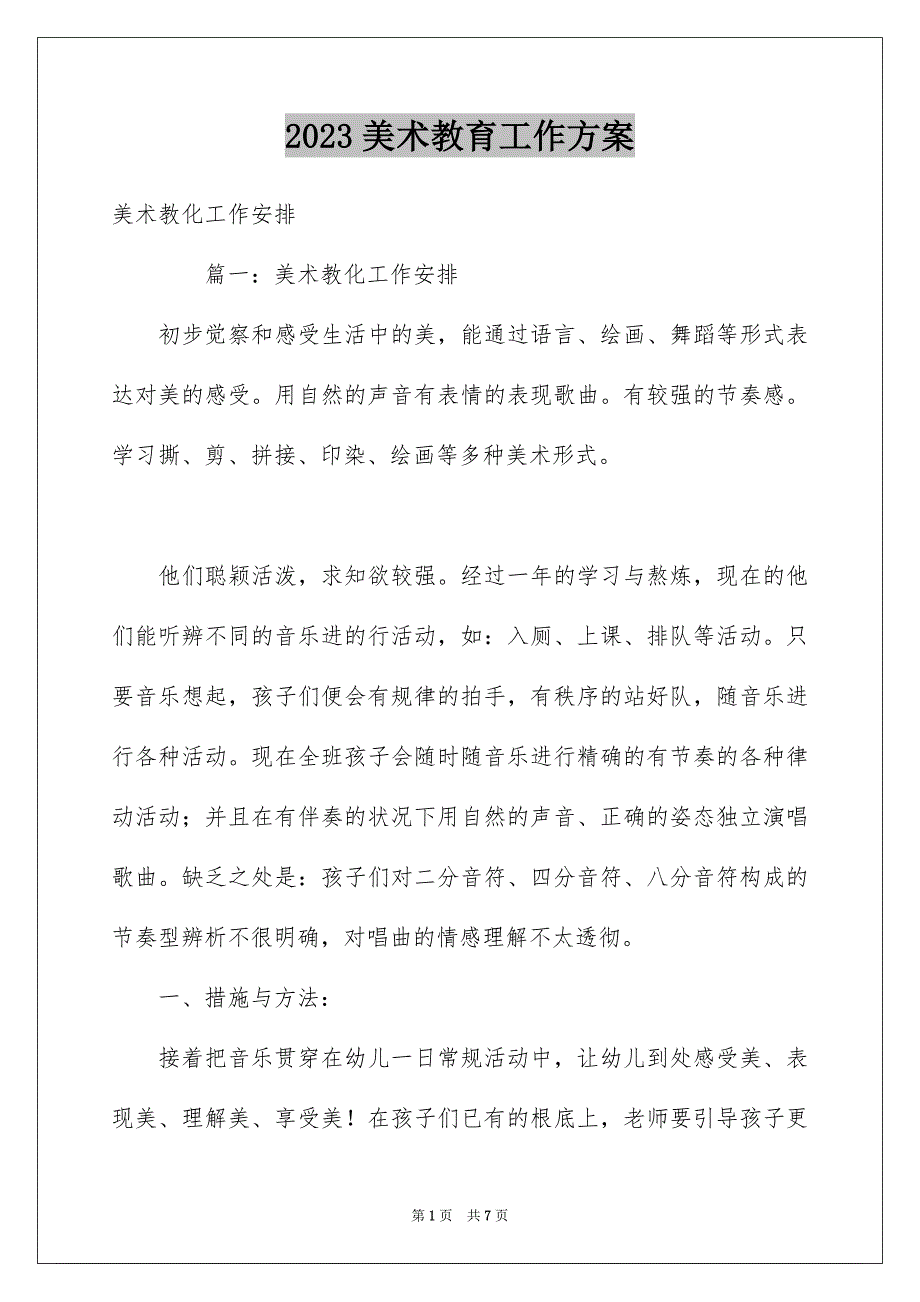 2023美术教育工作方案
美术教化工作安排
篇一：美术教化工作安排
初步觉察和感受生活中的美，能通过语言、绘画、舞蹈等形式表
达对美的感受。用自然的声音有表情的表现歌曲。有较强的节奏感。
学习撕、剪、拼接、印染、绘画等多种美术形式。
他们聪颖活泼，求知欲较强。经过一年的学习与熬炼，现在的他
们能听辨不同的音乐进的行活动，如：入厕、上课、排队等活动。只
要音乐想起，孩子们便会有规律的拍手，有秩序的站好队，随音乐进
行各种活动。现在全班孩子会随时随音乐进行精确的有节奏的各种律
动活动；并且在有伴奏的状况下用自然的声音、正确的姿态独立演唱
歌曲。缺乏之处是：孩子们对二分音符、四分音符、八分音符构成的
节奏型辨析不很明确，对唱曲的情感理解不太透彻。
一、措施与方法：
接着把音乐贯穿在幼儿一日常规活动中，让幼儿到处感受美、表
现美、理解美、享受美！在孩子们已有的根底上，老师要引导孩子更
第1页 共7页